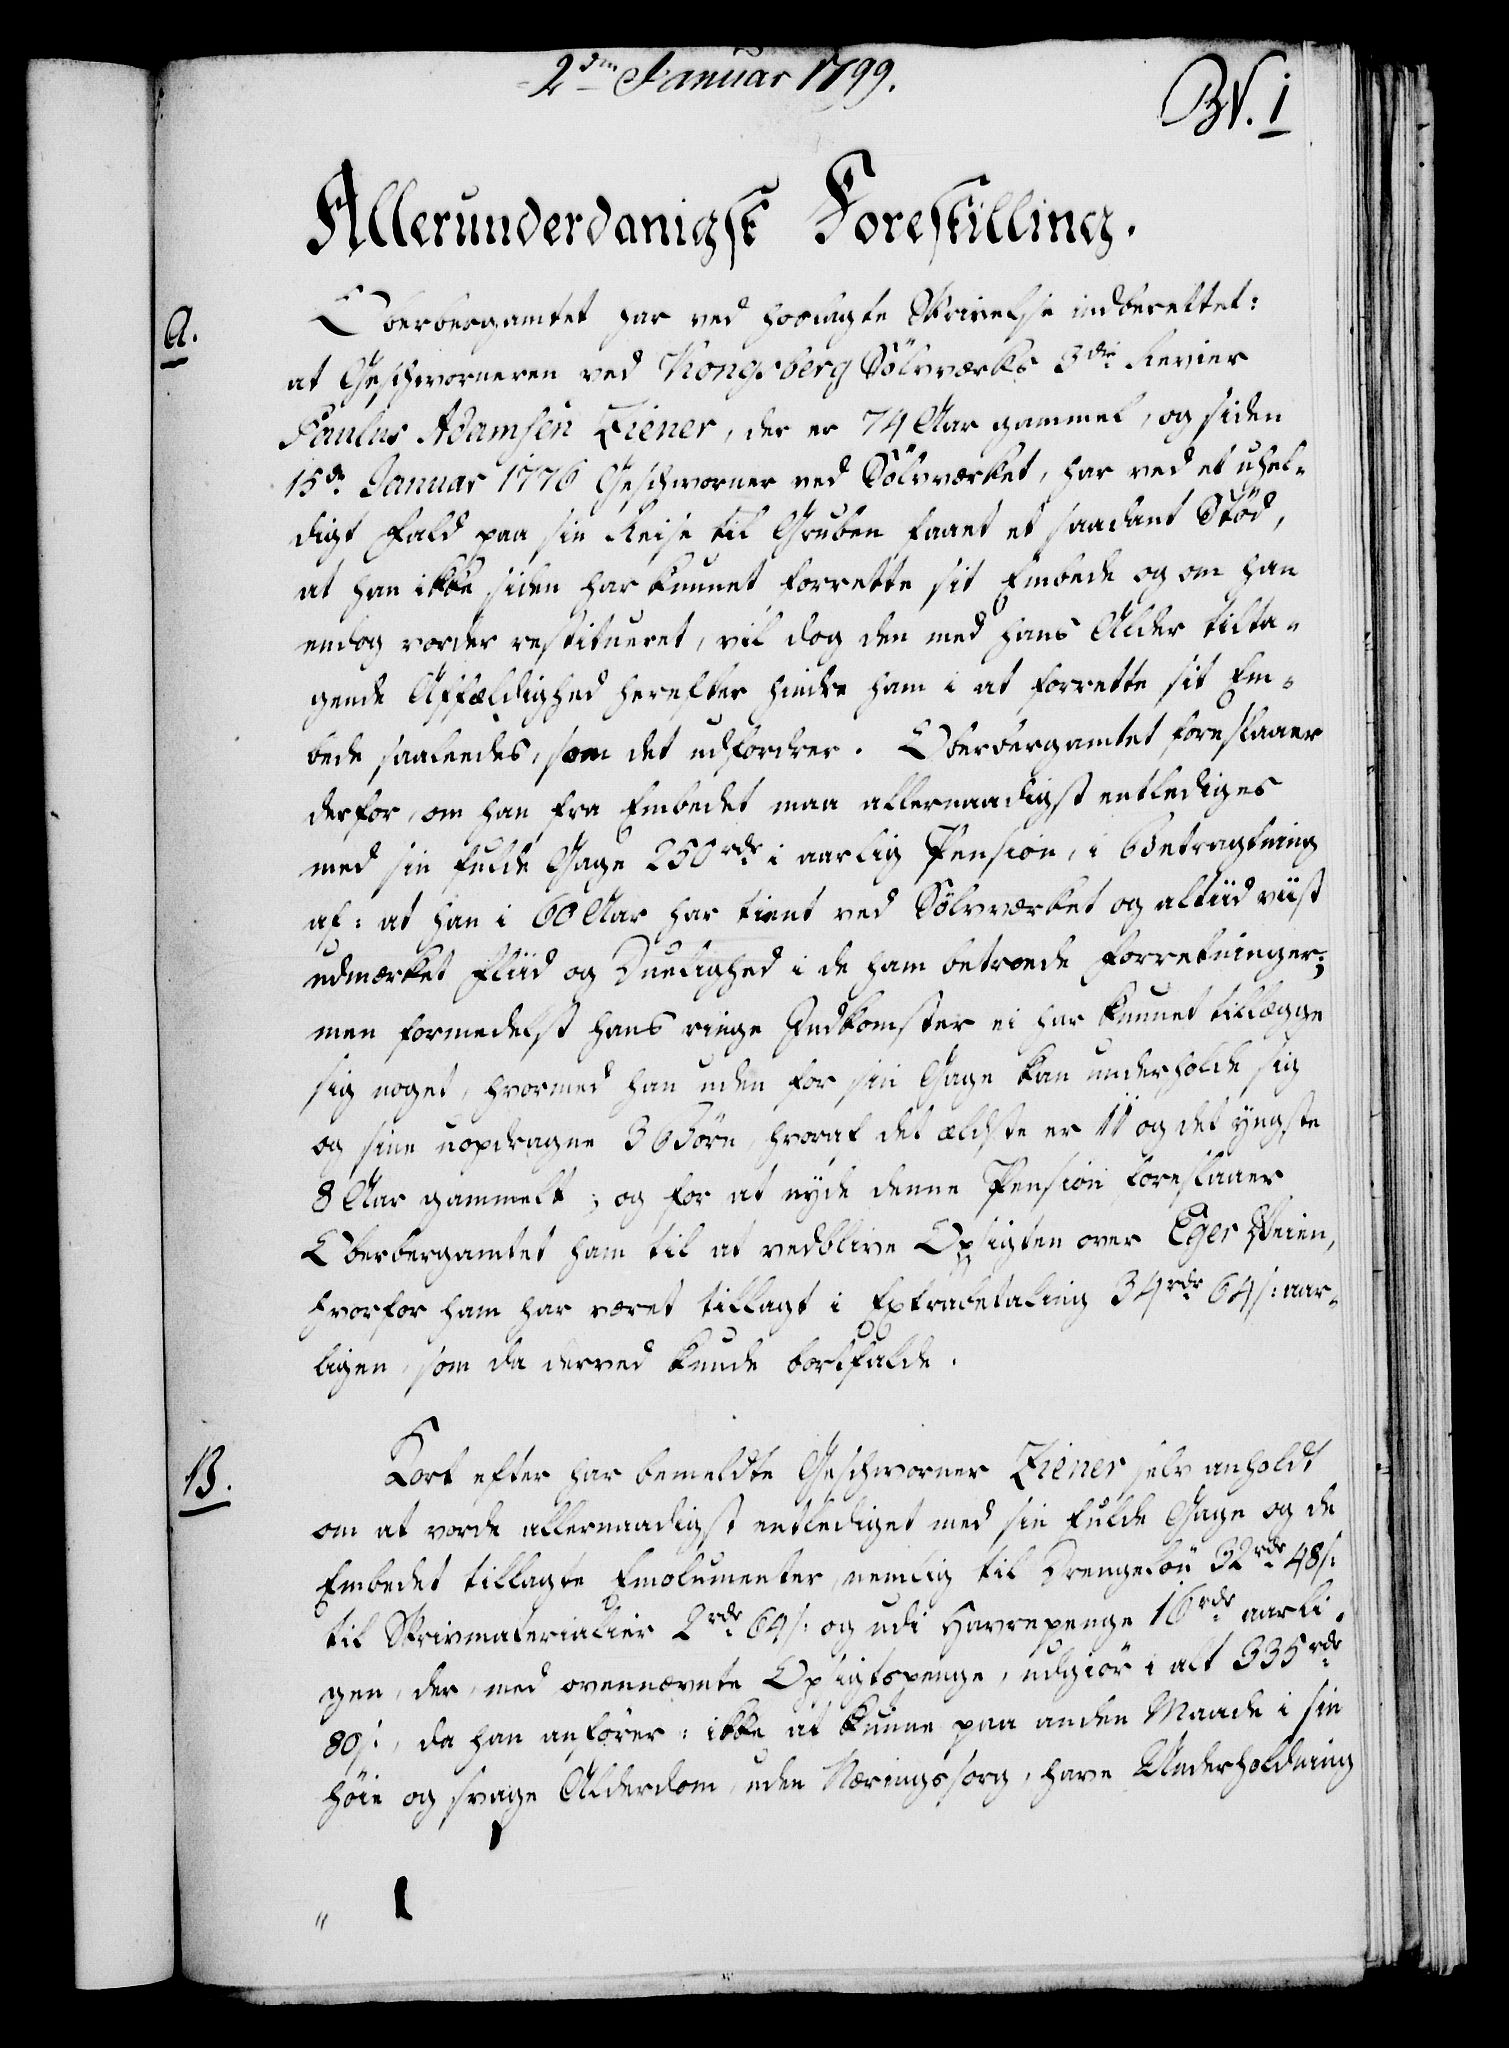 2den Januar 1799.
BN. 1
Allerunderdanigst Forestilling.
A.
Oberbergamtet har ved hoslagte Skrivelse indberettet:
at Geschworneren ved Kongsberg Sölvværks 3die Revier
Paulus Adamsen Ziener, der er 74 Aar gammel, og siden
15de Januar 1776 Geschworner ved Sölvværket, har ved et uhel-
digt Fald paa sin Reise til Gruben faaet et saadant Stöd,
at han ikke siden har kunnet forrette sit Embede og om han
endog vorder restitueret, vil dog den med hans Alder tilta-
gende Affældighed herefter hindre ham i at forrette sit Em-
bede saaledes, som det udfordrer. Oberbergamtet foreslaaer
derfor, om han fra Embedet maa allernaadigst entlediges
med sin fulde Gage 250 rdr i aarlig Pension, i Betragtning
af: at han i 60 Aar har tient ved Sölvværket og altiid viist
udmærket Fliid og Duelighed i de ham betroede Forretninger;
men formedelst hans ringe Indkomster ei har kunnet tillægge
sig noget, hvormed han uden for sin Gage kan underholde sig
og sine uopdragne 3 Börn, hvoraf det ældste er 11 og det yngste
8 Aar gammelt; og for at nyde denne Pension foreslaaer
Oberbergamtet ham til at vedblive Opsigten over Eger Veien,
hvorfor ham har været tillagt i Extrabetaling 34 rdr 64 s: aar-
ligen, som da derved kunde bortfalde.
B.
Kort efter har bemeldte Geschworner Ziener selv anholdt
om at vorde allernaadigst entlediget med sin fulde Gage og de
Embedet tillagte Emolumenter, nemlig til Drengelön 32 rdr 48 s:
til Skrivmaterialier 2 rdr 64 s: og udi Havrepenge 16 rdr aarli-
gen, der, med ovennævnte Opsigtspenge, udgiör i alt 335 rdr
80 s:, da han anförer: ikke at kunne paa anden Maade i sin
höie og svage Alderdom, uden Næringssorg, have Underholdning